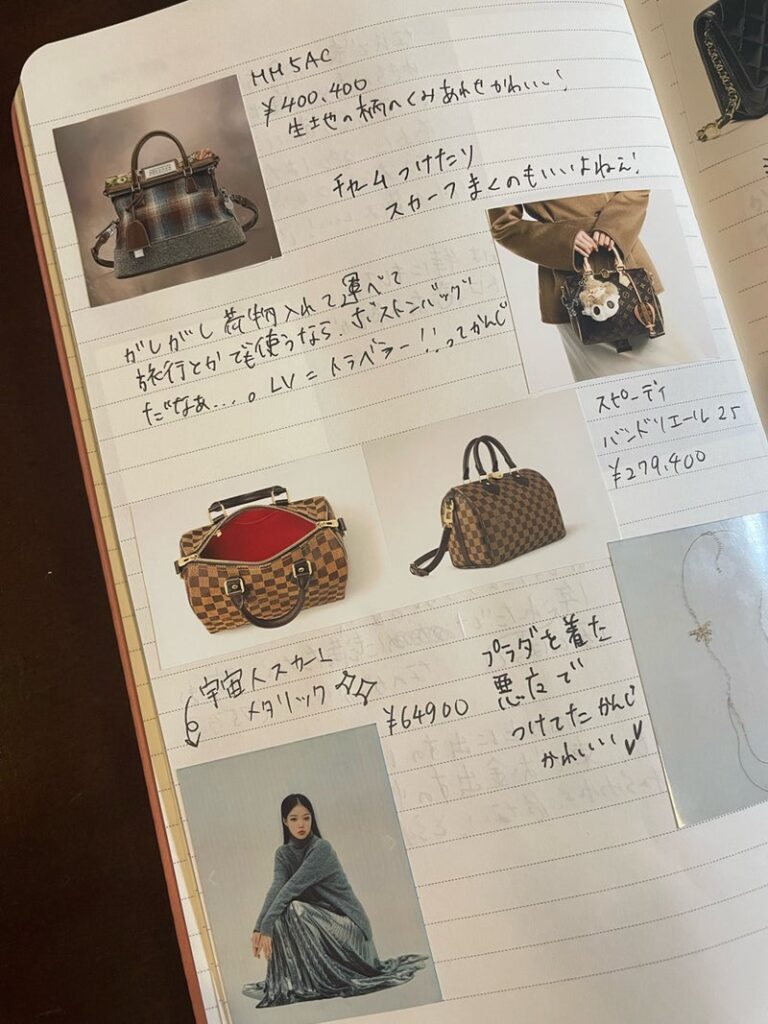 MM5AC
¥400.400
生地の柄のくみあわせかわいい!
チャームつけたり
スカーフまくのもいいよねぇ!
がしがし荷物入れて運べて
旅行とかでも使うなら、ボストンバッグ
だなぁ...。LV=トラベラー!!ってかんじ
スピーディ
バンドリエール 25
¥279.400
宇宙人スカート
メタリック
¥64900
プラダを着た
悪魔で
つけてたかんじ
かわいいい